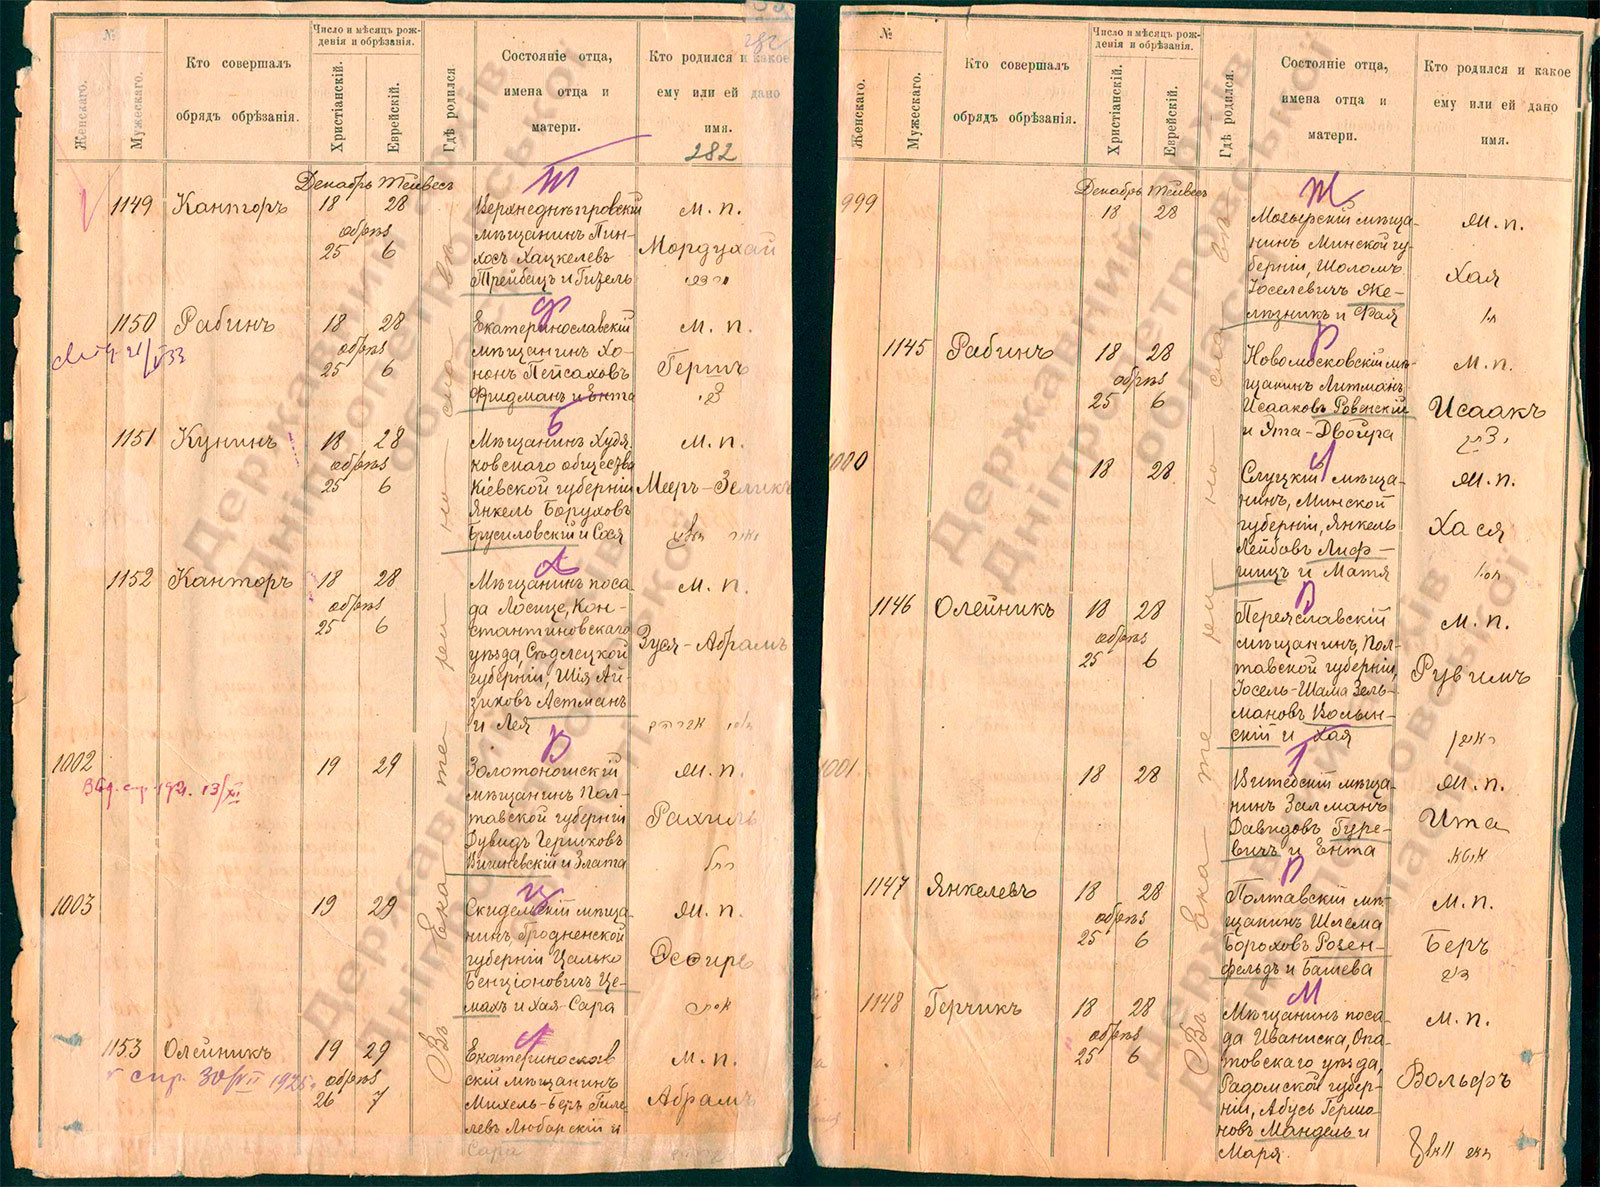 №
Женскаго.
Мужескаго.
Кто совершалъ
обрядъ обрѣзанія.
Число и мѣсяцъ рож-
денія и обрѣзанія.
Христіанскій.
Еврейскій.
Гдѣ родился
Состояніе отца,
имена отца и
матери.
Кто родился и какое
ему или ей дано
имя.
282
Декабрь Тейвесъ
Въ Екате ри но сла вѣ
1149 Канторъ 18 28
обрѣз
25 6
Верхнеднѣпровскій
мѣщанинъ Пин-
хосъ Хацкелевъ
Трейбацъ и Гизель
м. п.
Мордухай
1150 Рабинъ 18 28
обрѣз
25 6
Екатеринославскій
мѣщанинъ Хо-
нонъ Пейсаховъ
Фридманъ и Ента
м. п.
Гершъ
1151 Кунинъ 18 28
обрѣз
25 6
Мѣщанинъ Худя-
ковскаго общества
Кіевской губерніи
Янкель Боруховъ
Брусиловскій и Сося
м. п.
Мееръ-Зеликъ
1152 Канторъ 18 28
обрѣз
25 6
Мѣщанинъ поса-
да Лосице, Кон-
стантиновскаго
уѣзда, Сѣдлецкой
губерніи, Шія Ай-
зиковъ Астманъ
и Лея
м. п.
Зуся-Абрамъ
1002 19 29
Золотоношскій
мѣщанинъ Пол-
тавской губерніи
Дувидъ Гершковъ
Вишневскій и Злата
ж. п.
Рахиль
1003 19 29
Скидельскій мѣща-
нинъ, Гродненской
губерніи Цалько
Бенціоновичъ Це-
махъ и Хая-Сара
ж. п.
Эсфирь
1153 Олейникъ 19 29
обрѣз
26 7
Екатеринослав
скій мѣщанинъ
Михель-Беръ Гиле-
левъ Любарскій и
Сара
м. п.
Абрамъ
№
Женскаго.
Мужескаго.
Кто совершалъ
обрядъ обрѣзанія.
Число и мѣсяцъ рож-
денія и обрѣзанія.
Христіанскій.
Еврейскій.
Гдѣ родился.
Состояніе отца,
имена отца и
матери.
Кто родился и какое
ему или ей дано
имя.
Декабрь Тейвесъ
Въ Екате ри но сла вѣ
999 18 28
Мозырскій мѣща-
нинъ Минской гу-
берніи, Шоломъ
Іоселевичъ Же-
лѣзникъ и Фая
ж. п.
Хая
1145 Рабинъ 18 28
обрѣз
25 6
Новомосковскій мѣ-
щанинъ Литманъ
Исааковъ Ровенскій
и Ята-Двойра
м. п.
Исаакъ
1000 18 28
Слуцкій мѣща-
нинъ, Минской
губерніи, Янкель
Лейбовъ Лиф-
шицъ и Матя
ж. п.
Хася
1146 Олейникъ 18 28
обрѣз
25 6
Переяславскій
мѣщанинъ, Пол-
тавской губерніи,
Іосель-Шама Зель-
мановъ Волын-
скій и Хая
м. п.
Рувимъ
1001 18 28
Витебскій мѣща-
нинъ Залманъ
Давидовъ Гуре-
вичъ и Ента
ж. п.
Ита
1147 Янкелевъ 18 28
обрѣз
25 6
Полтавскій мѣ-
щанинъ Шлема
Боруховъ Розен-
фельдъ и Башева
м. п.
Беръ
1148 Герчикъ 18 28
обрѣз
25 6
Мѣщанинъ поса-
да Иваниска, Опа-
товскаго уѣзда,
Радомской губер-
ніи, Абусь Гершо-
новъ Мандель и
Маря.
м. п.
Вольфъ
Державний архів
Дніпропетровської
області